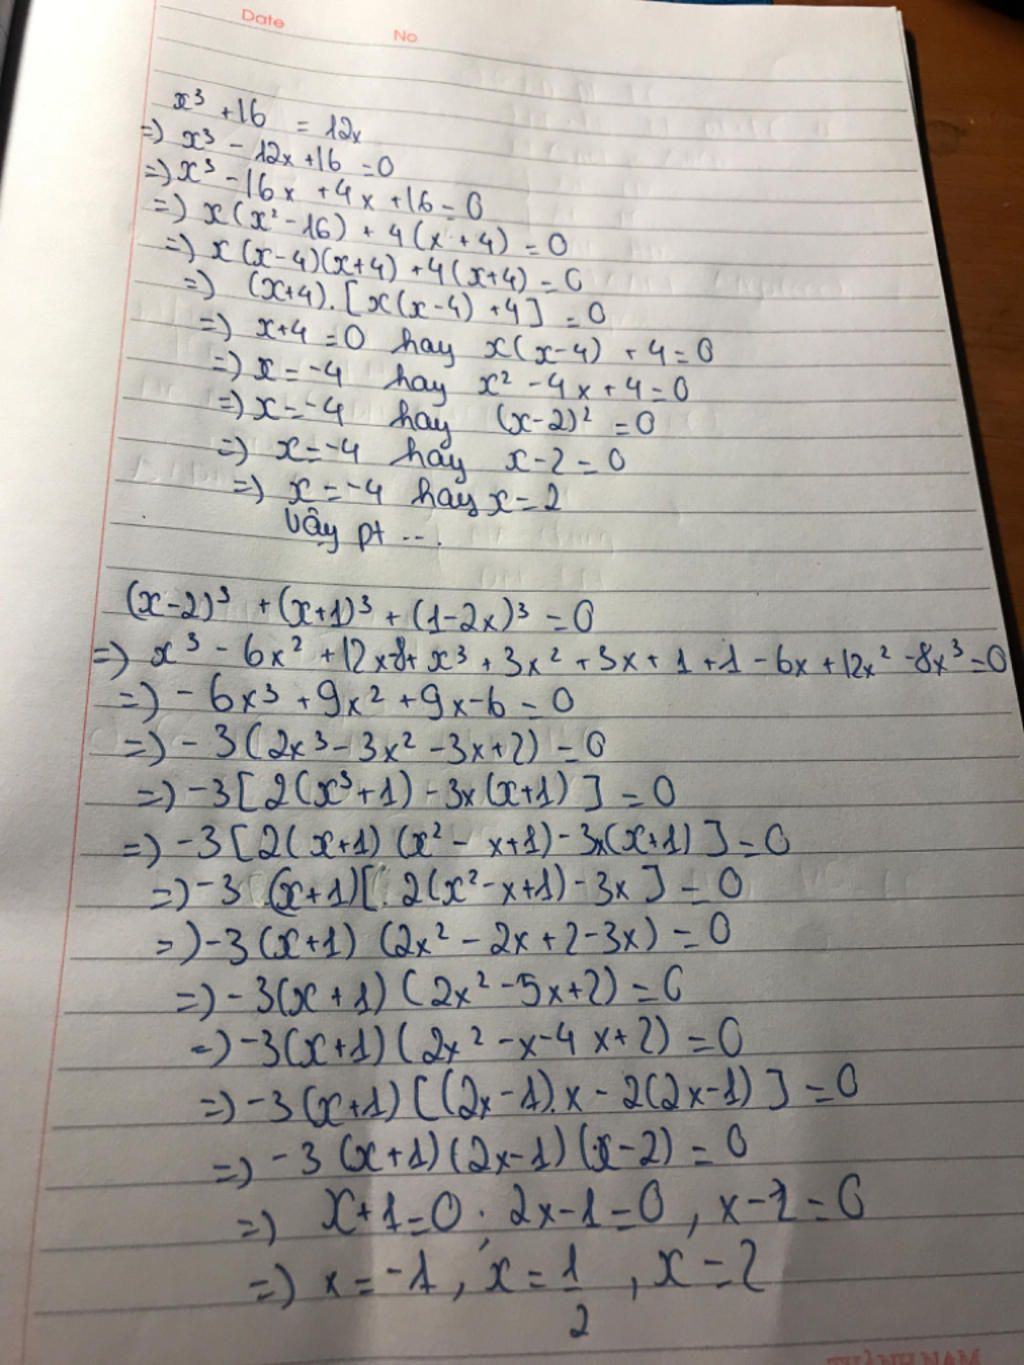 Date
No
x³ + 16 = 12x
=) x³ - 12x + 16 = 0
=) x³ - 16x + 4x + 16 = 0
=) x(x² - 16) + 4(x + 4) = 0
=) x(x-4)(x+4) + 4(x+4) = 0
=) (x+4).[x(x-4) + 4] = 0
=) x+4 = 0 hay x(x-4) + 4 = 0
=) x = -4 hay x² - 4x + 4 = 0
=) x = -4 hay (x-2)² = 0
=) x = -4 hay x - 2 = 0
=) x = -4 hay x = 2
Vây pt ...
(x-2)³ + (x+1)³ + (1-2x)³ = 0
=) x³ - 6x² + 12x - 8 + x³ + 3x² + 3x + 1 + 1 - 6x + 12x² - 8x³ = 0
=) - 6x³ + 9x² + 9x - 6 = 0
=) - 3(2x³ - 3x² - 3x + 2) = 0
=) -3[2(x³+1) - 3x(x+1)] = 0
=) -3[2(x+1)(x² - x+1) - 3x(x+1)] = 0
=) -3(x+1)[2(x² - x+1) - 3x] = 0
=) -3(x+1)(2x² - 2x + 2 - 3x) = 0
=) -3(x+1)(2x² - 5x + 2) = 0
=) -3(x+1)(2x² - x - 4x + 2) = 0
=) -3(x+1)[(2x-1).x - 2(2x-1)] = 0
=) -3(x+1)(2x-1)(x-2) = 0
=) x+1 = 0 ; 2x-1 = 0 , x-2 = 0
=) x = -1 , x = 1/2 , x = 2